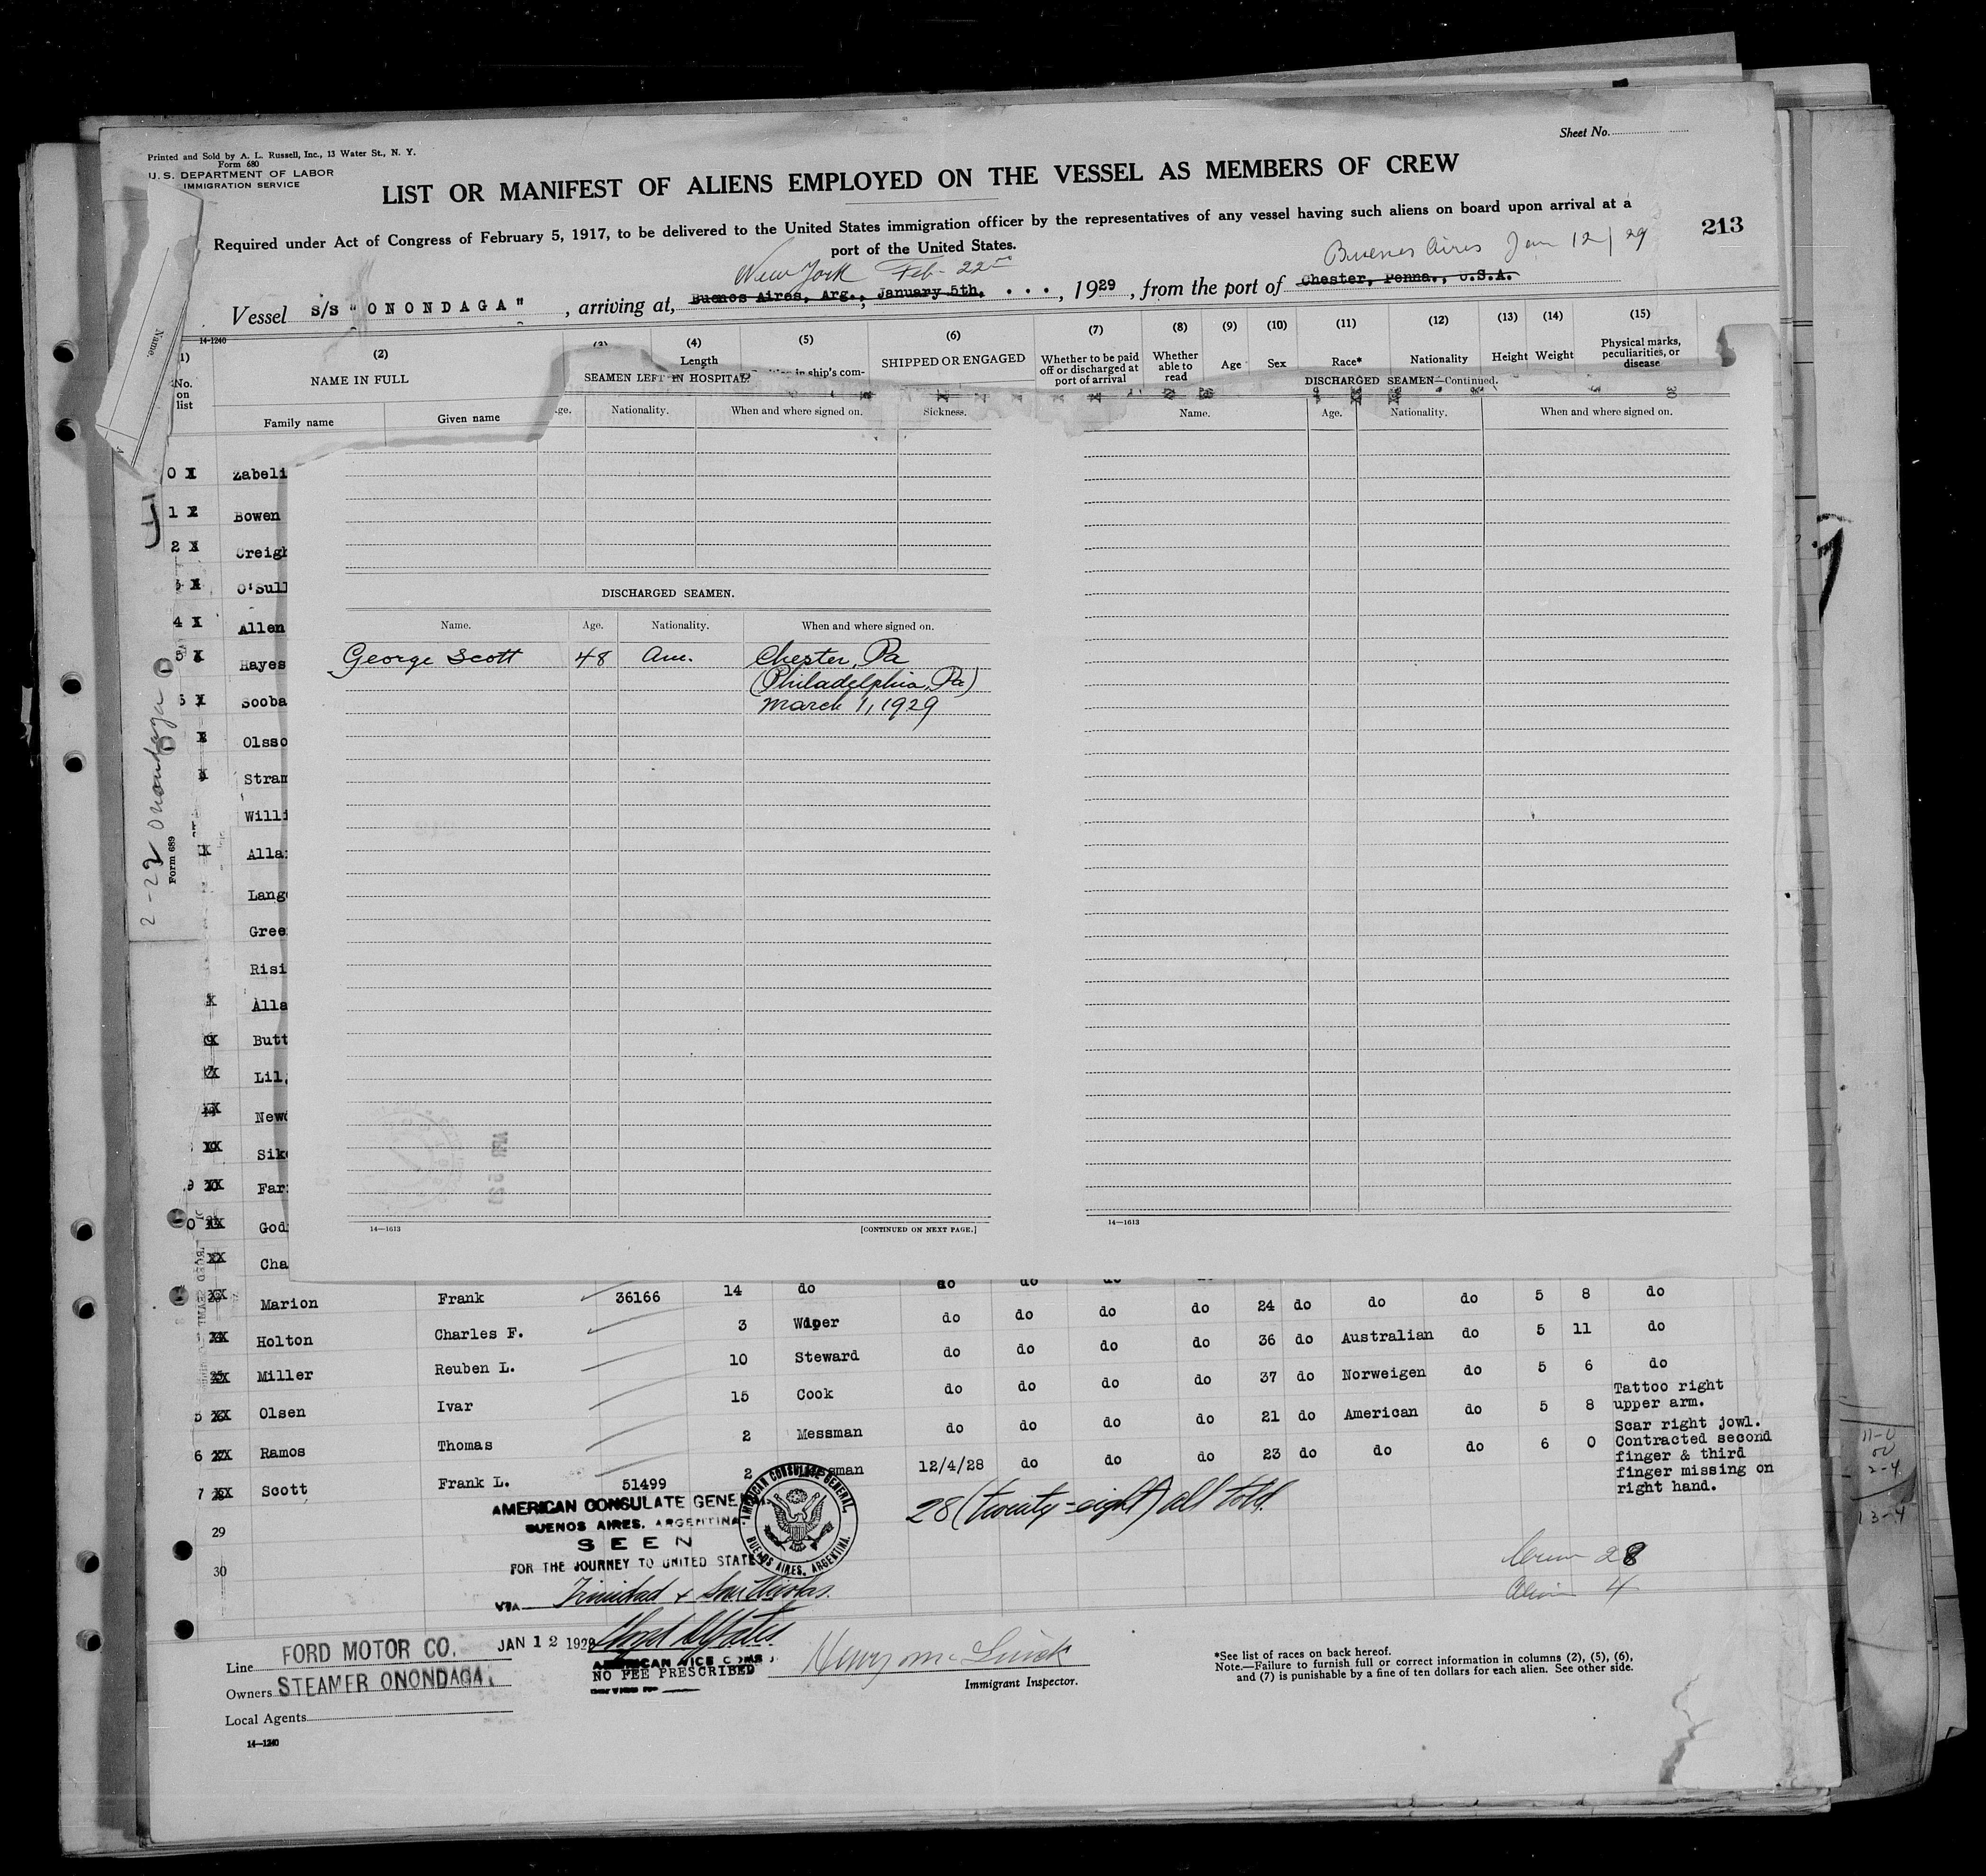 Sheet No.
Printed and Sold by A. L. Russell, Inc., 13 Water St., N. Y.
Form 680
U. S. DEPARTMENT OF LABOR
IMMIGRATION SERVICE
LIST OR MANIFEST OF ALIENS EMPLOYED ON THE VESSEL AS MEMBERS OF CREW
Required under Act of Congress of February 5, 1917, to be delivered to the United States immigration officer by the representatives of any vessel having such aliens on board upon arrival at a
port of the United States.
213
New York Feb. 22nd Buenos Aires Jan 12/29
Vessel S/S "ONONDAGA", arriving at, Buenos Aires, Arg., January 5th, . . . , 1929, from the port of Chester, Penna., U.S.A.
14-1240
(2) (4) (5) (6) (7) (8) (9) (10) (11) (12) (13) (14) (15)
No. on list
NAME IN FULL
Family name
Given name
Length
SHIPPED OR ENGAGED
Whether to be paid off or discharged at port of arrival
Whether able to read
Age
Sex
Race*
Nationality
Height
Weight
Physical marks, peculiarities, or disease
Name.
SEAMEN LEFT IN HOSPITAL
Nationality. When and where signed on. Sickness.
DISCHARGED SEAMEN—Continued.
Name. Age. Nationality. When and where signed on.
Zabeli
Bowen
Creigh
O'Sull
Allen
Hayes
Sooba
Olsso
Stram
Willi
Alla
Lang
Gree
Risi
Alla
Butt
Lil
New
Sik
Far
God
Cha
2-22 Onondaga
Form 689
DISCHARGED SEAMEN.
Name. Age. Nationality. When and where signed on.
George Scott 48 Am. Chester, Pa
(Philadelphia, Pa)
March 1, 1929
14—1613 [CONTINUED ON NEXT PAGE.]
14—1613
Marion Frank 36166 14 do do do do do 24 do do do 5 8 do
Holton Charles F. 3 Wiper do do do do 36 do Australian do 5 11 do
Miller Reuben L. 10 Steward do do do do 37 do Norweigen do 5 6 do
Olsen Ivar 15 Cook do do do do 21 do American do 5 8 Tattoo right upper arm.
Ramos Thomas 2 Messman do do do do 23 do do do 6 0 Scar right jowl.
Scott Frank L. 51499 2 12/4/28 do do do Contracted second finger & third finger missing on right hand.
29
30
28 (twenty-eight) all told.
AMERICAN CONSULATE GENERAL
BUENOS AIRES, ARGENTINA
SEEN
FOR THE JOURNEY TO UNITED STATES
VIA Trinidad
AMERICAN CONSULATE GENERAL, BUENOS AIRES, ARGENTINA.
Crew 28
Alien 4
JAN 12 1929
AMERICAN VICE CONSUL
NO FEE PRESCRIBED
Line FORD MOTOR CO.
Owners STEAMER ONONDAGA.
Local Agents
14—1240
Immigrant Inspector.
*See list of races on back hereof.
Note.—Failure to furnish full or correct information in columns (2), (5), (6),
and (7) is punishable by a fine of ten dollars for each alien. See other side.